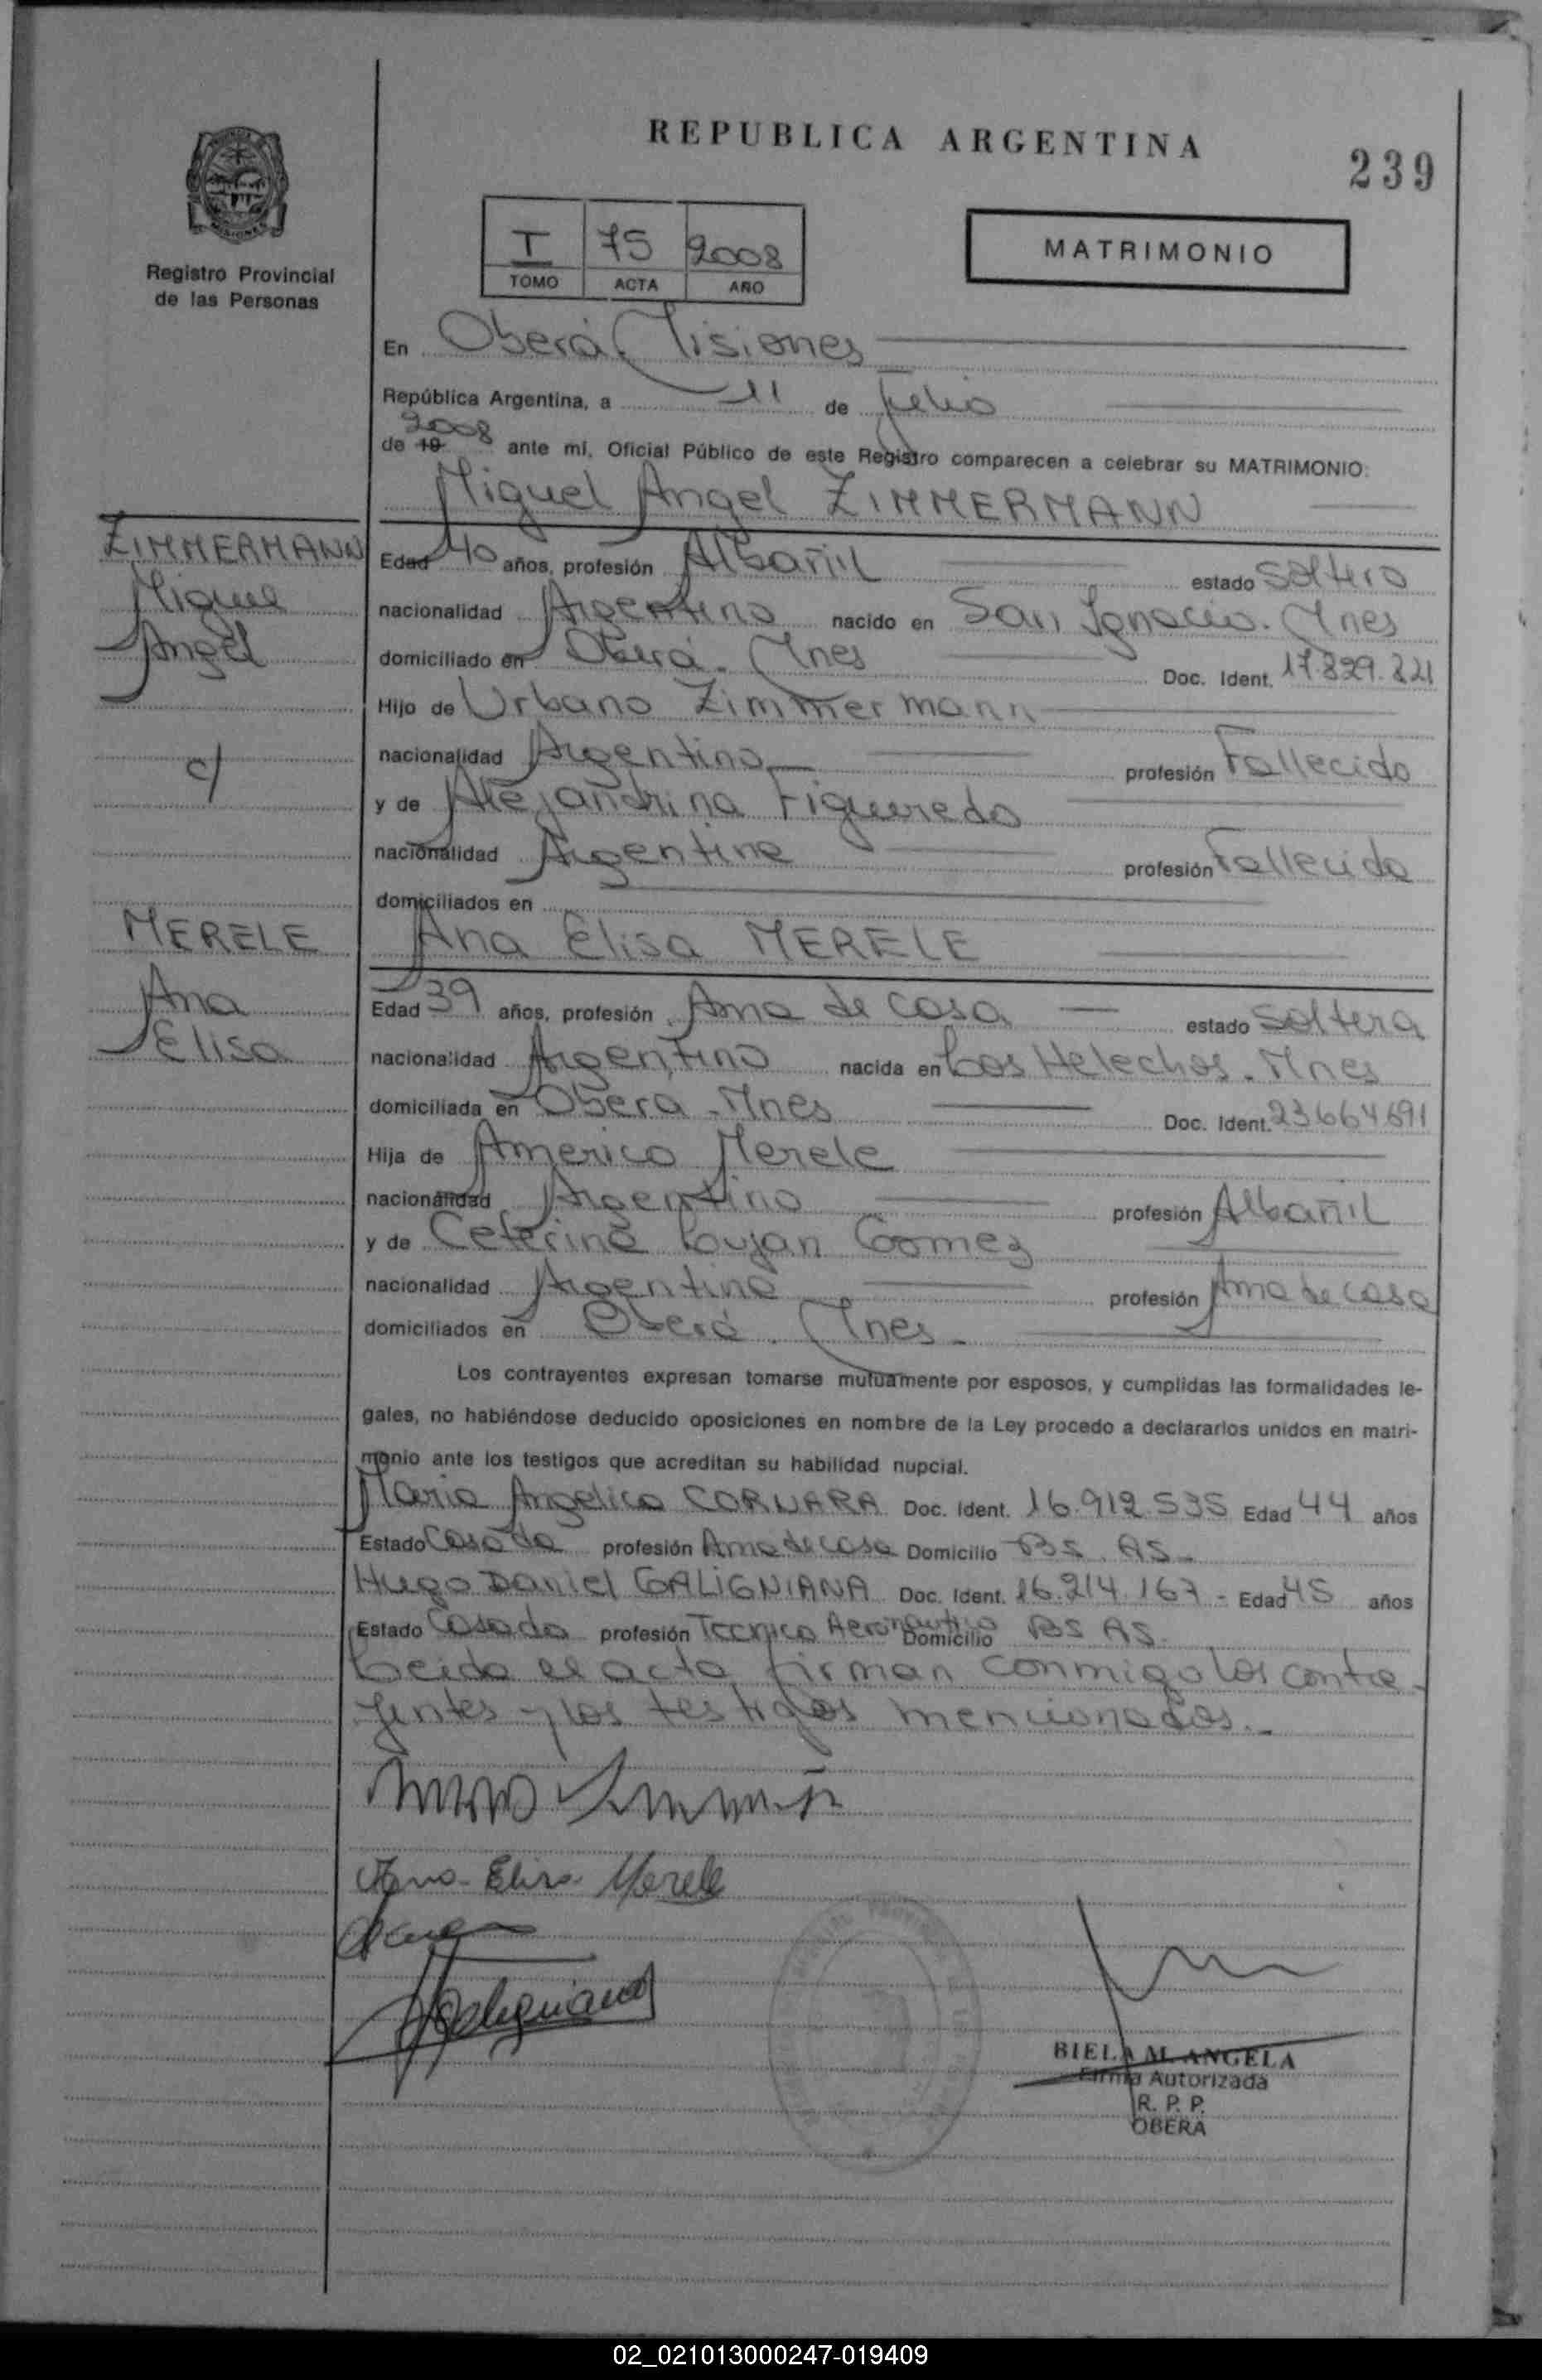 REPUBLICA ARGENTINA
239
Registro Provincial
de las Personas
I 75 2008
TOMO ACTA AÑO
MATRIMONIO
En Oberá Misiones
República Argentina, a 11 de Julio
de 19 2008 ante mí, Oficial Público de este Registro comparecen a celebrar su MATRIMONIO:
Miguel Angel ZIMMERMANN
ZIMMERMANN
Miguel
Angel
c/
MERELE
Ana
Elisa
Edad 40 años, profesión Albañil estado Soltero
nacionalidad Argentino nacido en San Ignacio. Mnes
domiciliado en Oberá. Mnes Doc. Ident. 17.829.821
Hijo de Urbano Zimmermann
nacionalidad Argentino profesión Fallecido
y de Alejandrina Figueredo
nacionalidad Argentina profesión Fallecida
domiciliados en
Ana Elisa MERELE
Edad 39 años, profesión Ama de casa estado Soltera
nacionalidad Argentino nacida en Los Helechos. Mnes
domiciliada en Oberá - Mnes Doc. Ident. 23664691
Hija de Americo Merele
nacionalidad Argentino profesión Albañil
y de Ceferina Lujan Gomez
nacionalidad Argentina profesión Ama de casa
domiciliados en Oberá. Mnes.
Los contrayentes expresan tomarse mutuamente por esposos, y cumplidas las formalidades le-
gales, no habiéndose deducido oposiciones en nombre de la Ley procedo a declararlos unidos en matri-
monio ante los testigos que acreditan su habilidad nupcial.
Maria Angelica CORNARA Doc. Ident. 16.912.535 Edad 44 años
Estado Casada profesión Ama de casa Domicilio BS. AS.
Hugo Daniel GALIGNIANA Doc. Ident. 16.214.167 - Edad 45 años
Estado Casado profesión Tecnico Aeronautico Domicilio BS AS.
Leida el acta, firman conmigo los contra-
yentes y los testigos mencionados.-
Ana Elisa Merele
Galigniana
BIELA M. ANGELA
Firma Autorizada
R. P. P.
OBERA
02_021013000247-019409